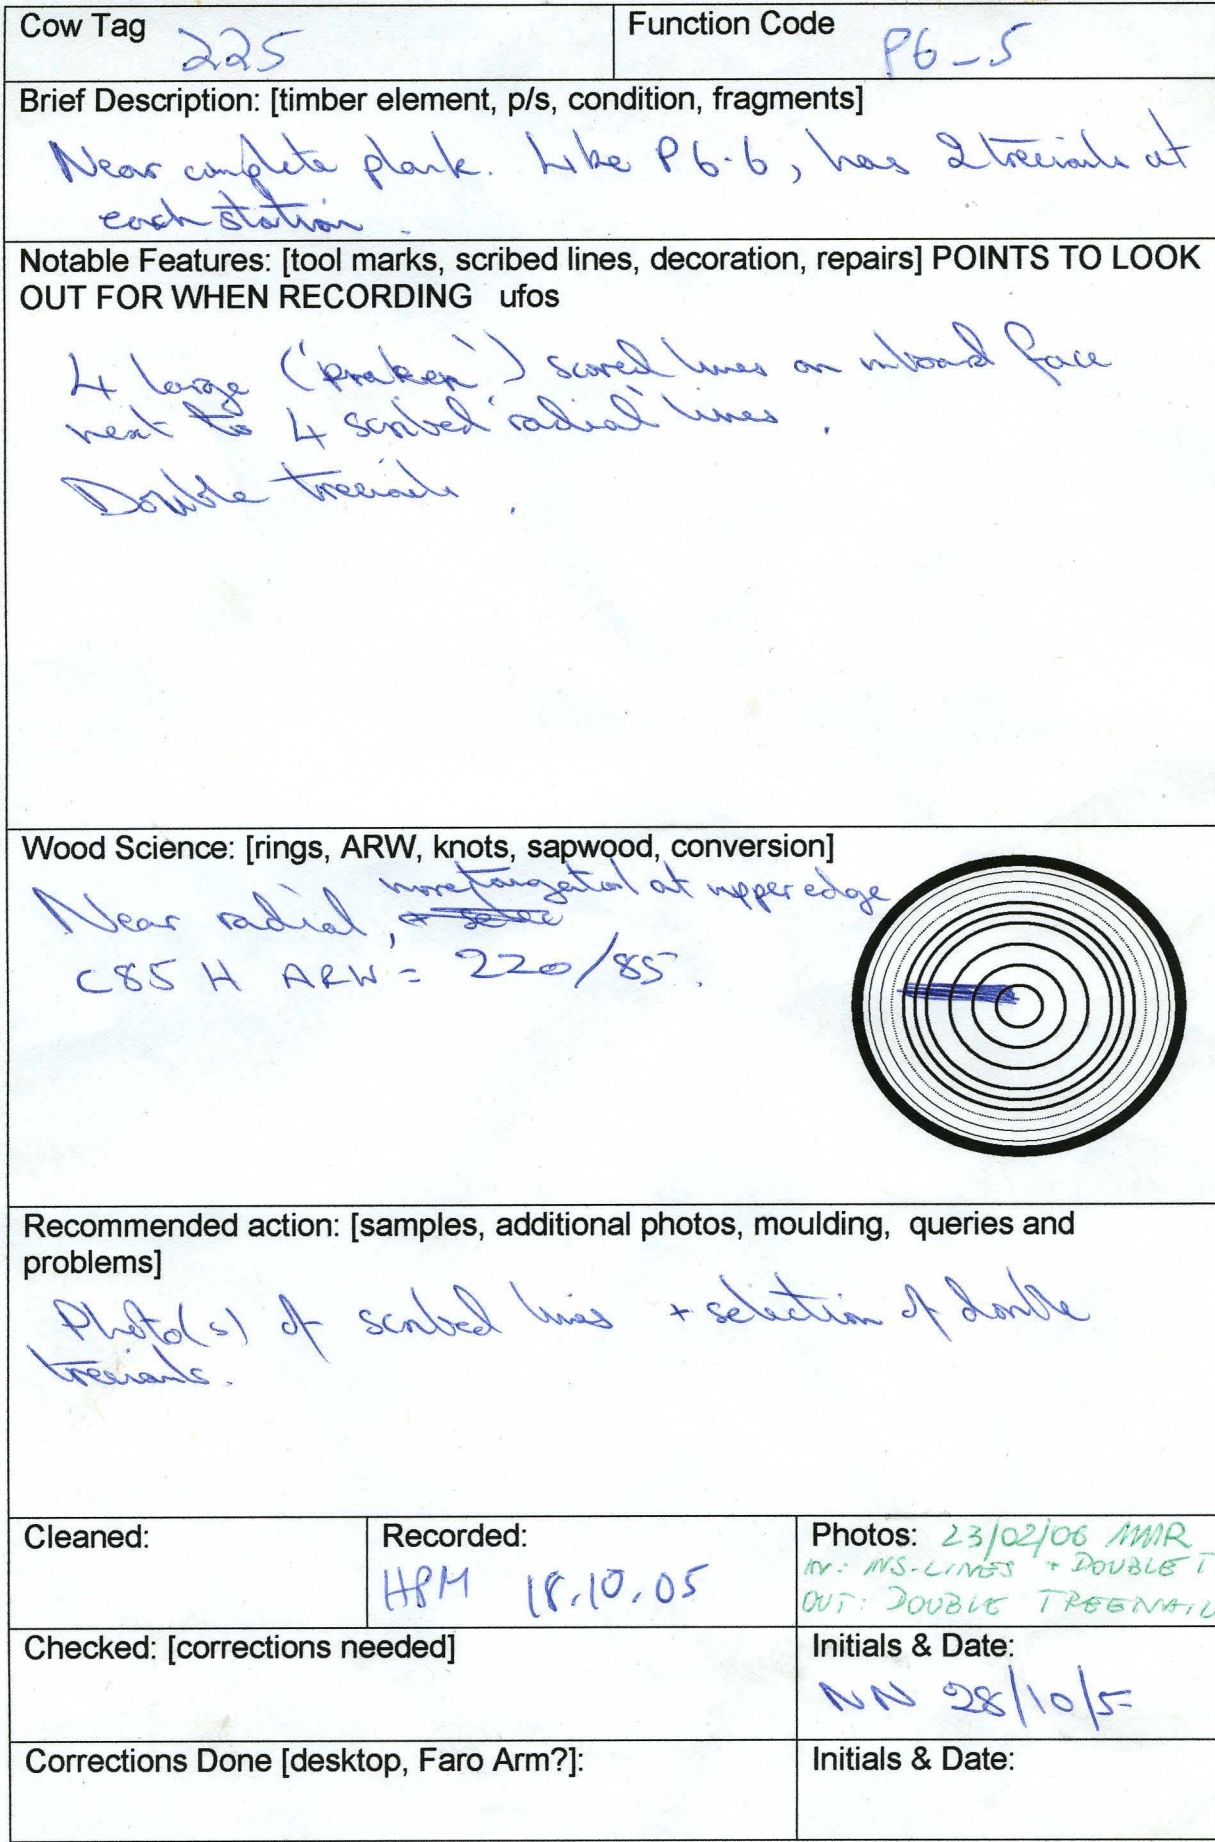 Cow Tag 225
Function Code P6_5
Brief Description: [timber element, p/s, condition, fragments]
Near complete plank. Like P6.6, has 2 treenails at
each station.
Notable Features: [tool marks, scribed lines, decoration, repairs] POINTS TO LOOK
OUT FOR WHEN RECORDING ufos
4 large ( ) scored lines on inboard face
next to 4 scribed 'radial' lines.
Double treenails.
Wood Science: [rings, ARW, knots, sapwood, conversion]
more tangential at upper edge
Near radial,
C85 H ARW = 220/85.
Recommended action: [samples, additional photos, moulding, queries and
problems]
Photo(s) of scribed lines + selection of double
treenails.
Cleaned:
Recorded:
HPM 18.10.05
Photos: 23/02/06
IN: INS-LINES + DOUBLE T
OUT: DOUBLE TREENAIL
Checked: [corrections needed]
Initials & Date:
NN 28/10/5
Corrections Done [desktop, Faro Arm?]:
Initials & Date: